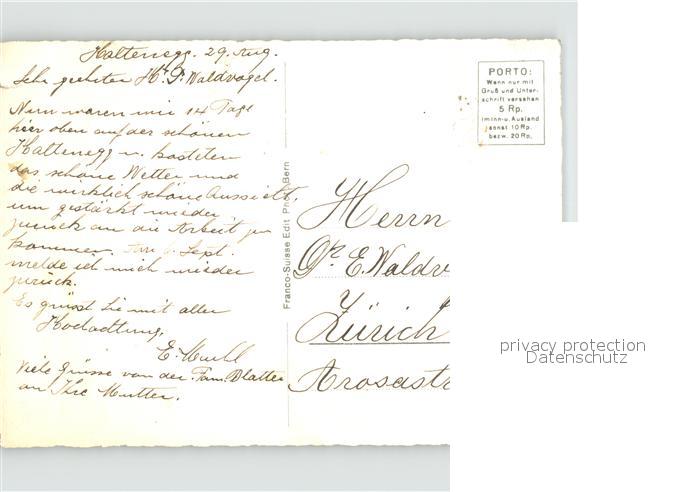 Haltenegg. 29. Aug.
Sehr geehrter Hr. Dr. Waldvogel.
Nun waren wir 14 Tage
hier oben auf der schönen
Haltenegg u. kosteten
das schöne Wetter und
die wirklich schöne Aussicht,
um gestärkt wieder
zurück an die Arbeit zu
kommen. Sept.
melde ich mich wieder
zurück.
Es grüsst Sie mit aller
Hochachtung,
E.
Viele Grüsse von der Fam. Blatter
an Ihre Mutter.
Franco-Suisse Edit Phot Bern
PORTO:
Wenn nur mit
Gruß und Unter-
schrift versehen
5 Rp.
im Inn-u. Ausland
sonst 10 Rp.
bezw. 20 Rp.
Herrn
Dr. E. Waldv
Zürich
Arosastr
privacy protection
Datenschutz